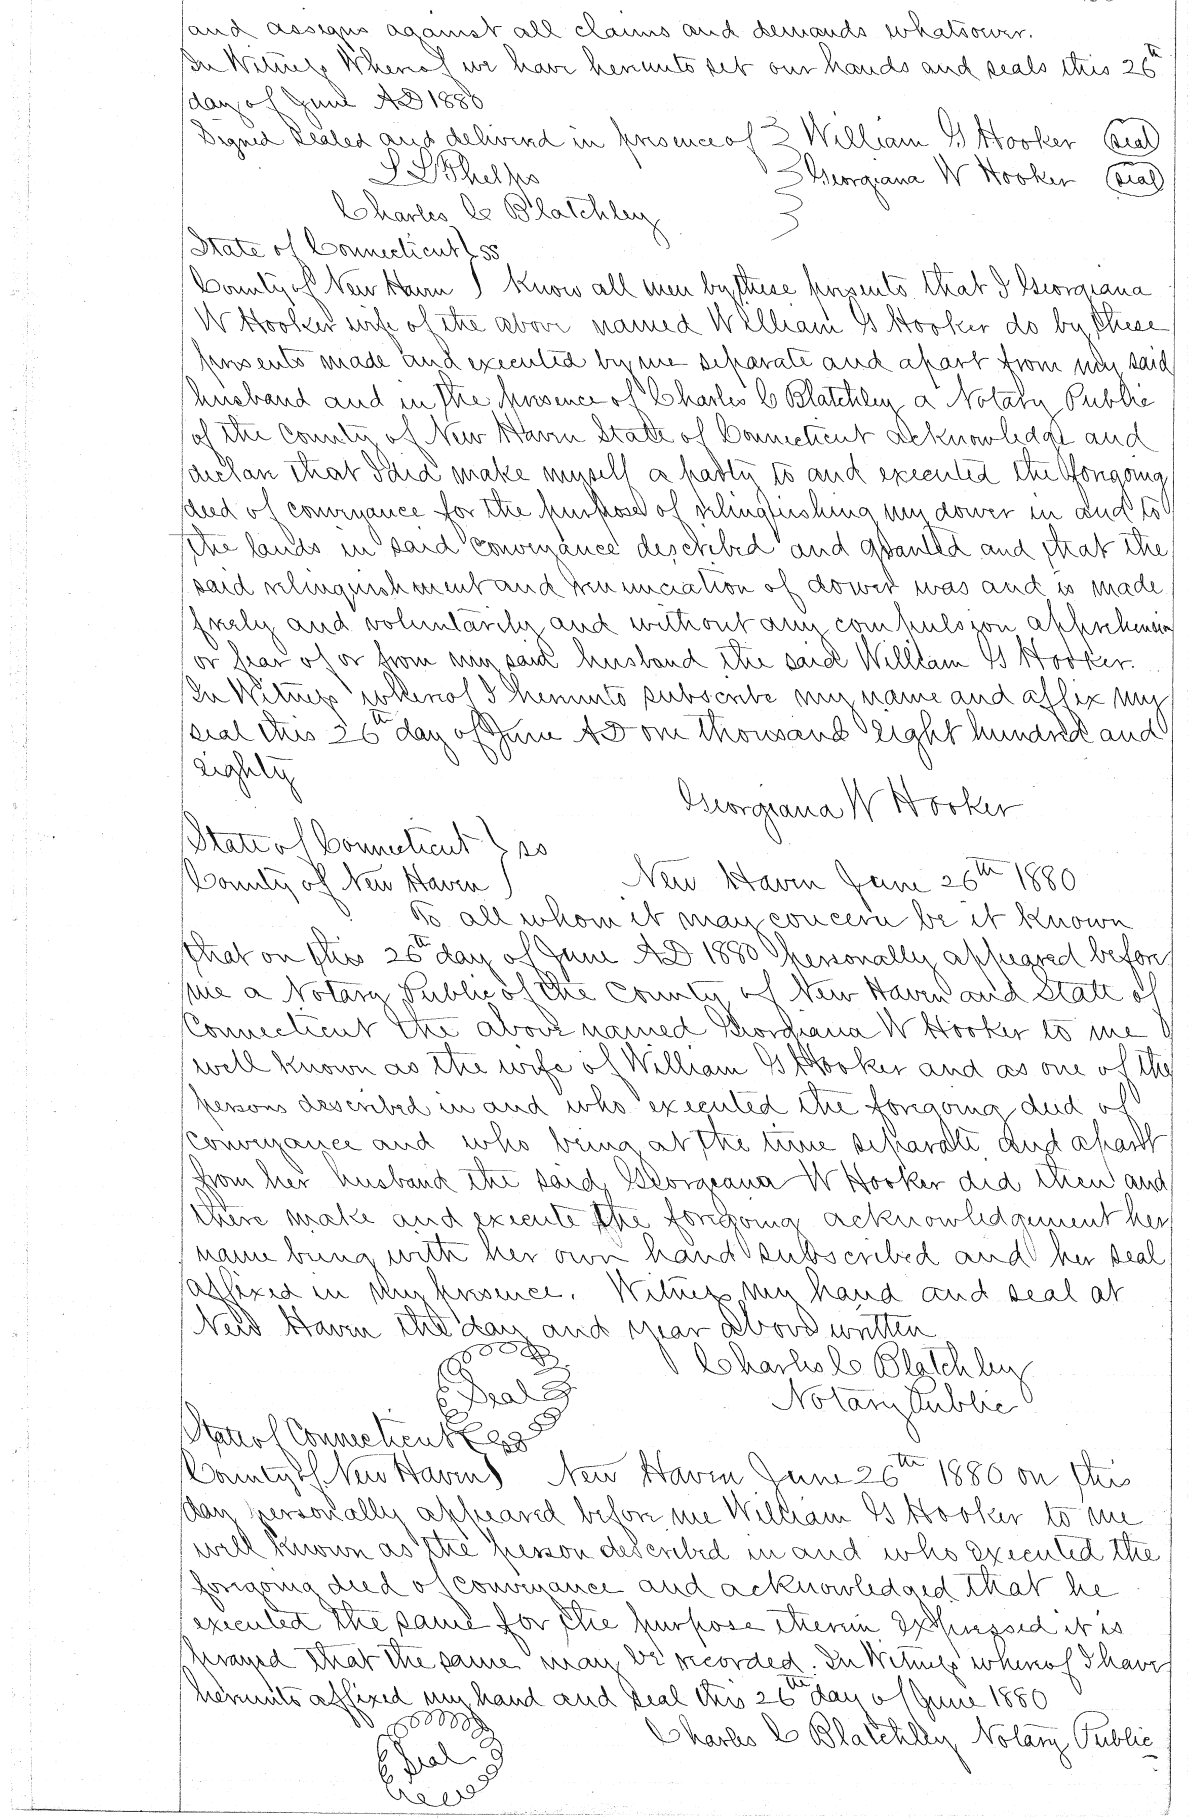 and assigns against all claims and demands whatsoever.
In Witness Whereof we have hereunto set our hands and seals this 26th
day of June AD 1880
Signed Sealed and delivered in presence of } William G Hooker (seal)
L L Phelps } Georgiana W Hooker (seal)
Charles C Blatchley }
State of Connecticut } ss
County of New Haven ) Know all men by these presents that I Georgiana
W Hooker wife of the above named William G Hooker do by these
presents made and executed by me separate and apart from my said
husband and in the presence of Charles C Blatchley a Notary Public
of the County of New Haven State of Connecticut acknowledge and
declare that I did make myself a party to and executed the foregoing
deed of conveyance for the purpose of relinquishing my dower in and to
the lands in said conveyance described and granted and that the
said relinquishment and renunciation of dower was and is made
freely and voluntarily and without any compulsion apprehension
or fear of or from my said husband the said William G Hooker.
In Witness whereof I hereunto subscribe my name and affix my
seal this 26th day of June AD one thousand eight hundred and
eighty
Georgiana W Hooker
State of Connecticut } ss
County of New Haven ) New Haven June 26th 1880
To all whom it may concern be it known
that on this 26th day of June AD 1880 personally appeared before
me a Notary Public of the County of New Haven and State of
Connecticut the above named Georgiana W Hooker to me
well known as the wife of William G Hooker and as one of the
persons described in and who executed the foregoing deed of
conveyance and who being at the time separate and apart
from her husband the said Georgeana W Hooker did then and
there make and execute the foregoing acknowledgement her
name being with her own hand subscribed and her seal
affixed in my presence. Witness my hand and seal at
New Haven the day and year above written
Charles C Blatchley
Seal Notary Public
State of Connecticut } ss
County of New Haven ) New Haven June 26th 1880 on this
day personally appeared before me William G Hooker to me
well known as the person described in and who executed the
foregoing deed of conveyance and acknowledged that he
executed the same for the purpose therein expressed it is
prayed that the same may be recorded. In Witness whereof I have
hereunto affixed my hand and seal this 26th day of June 1880
Seal Charles C Blatchley Notary Public